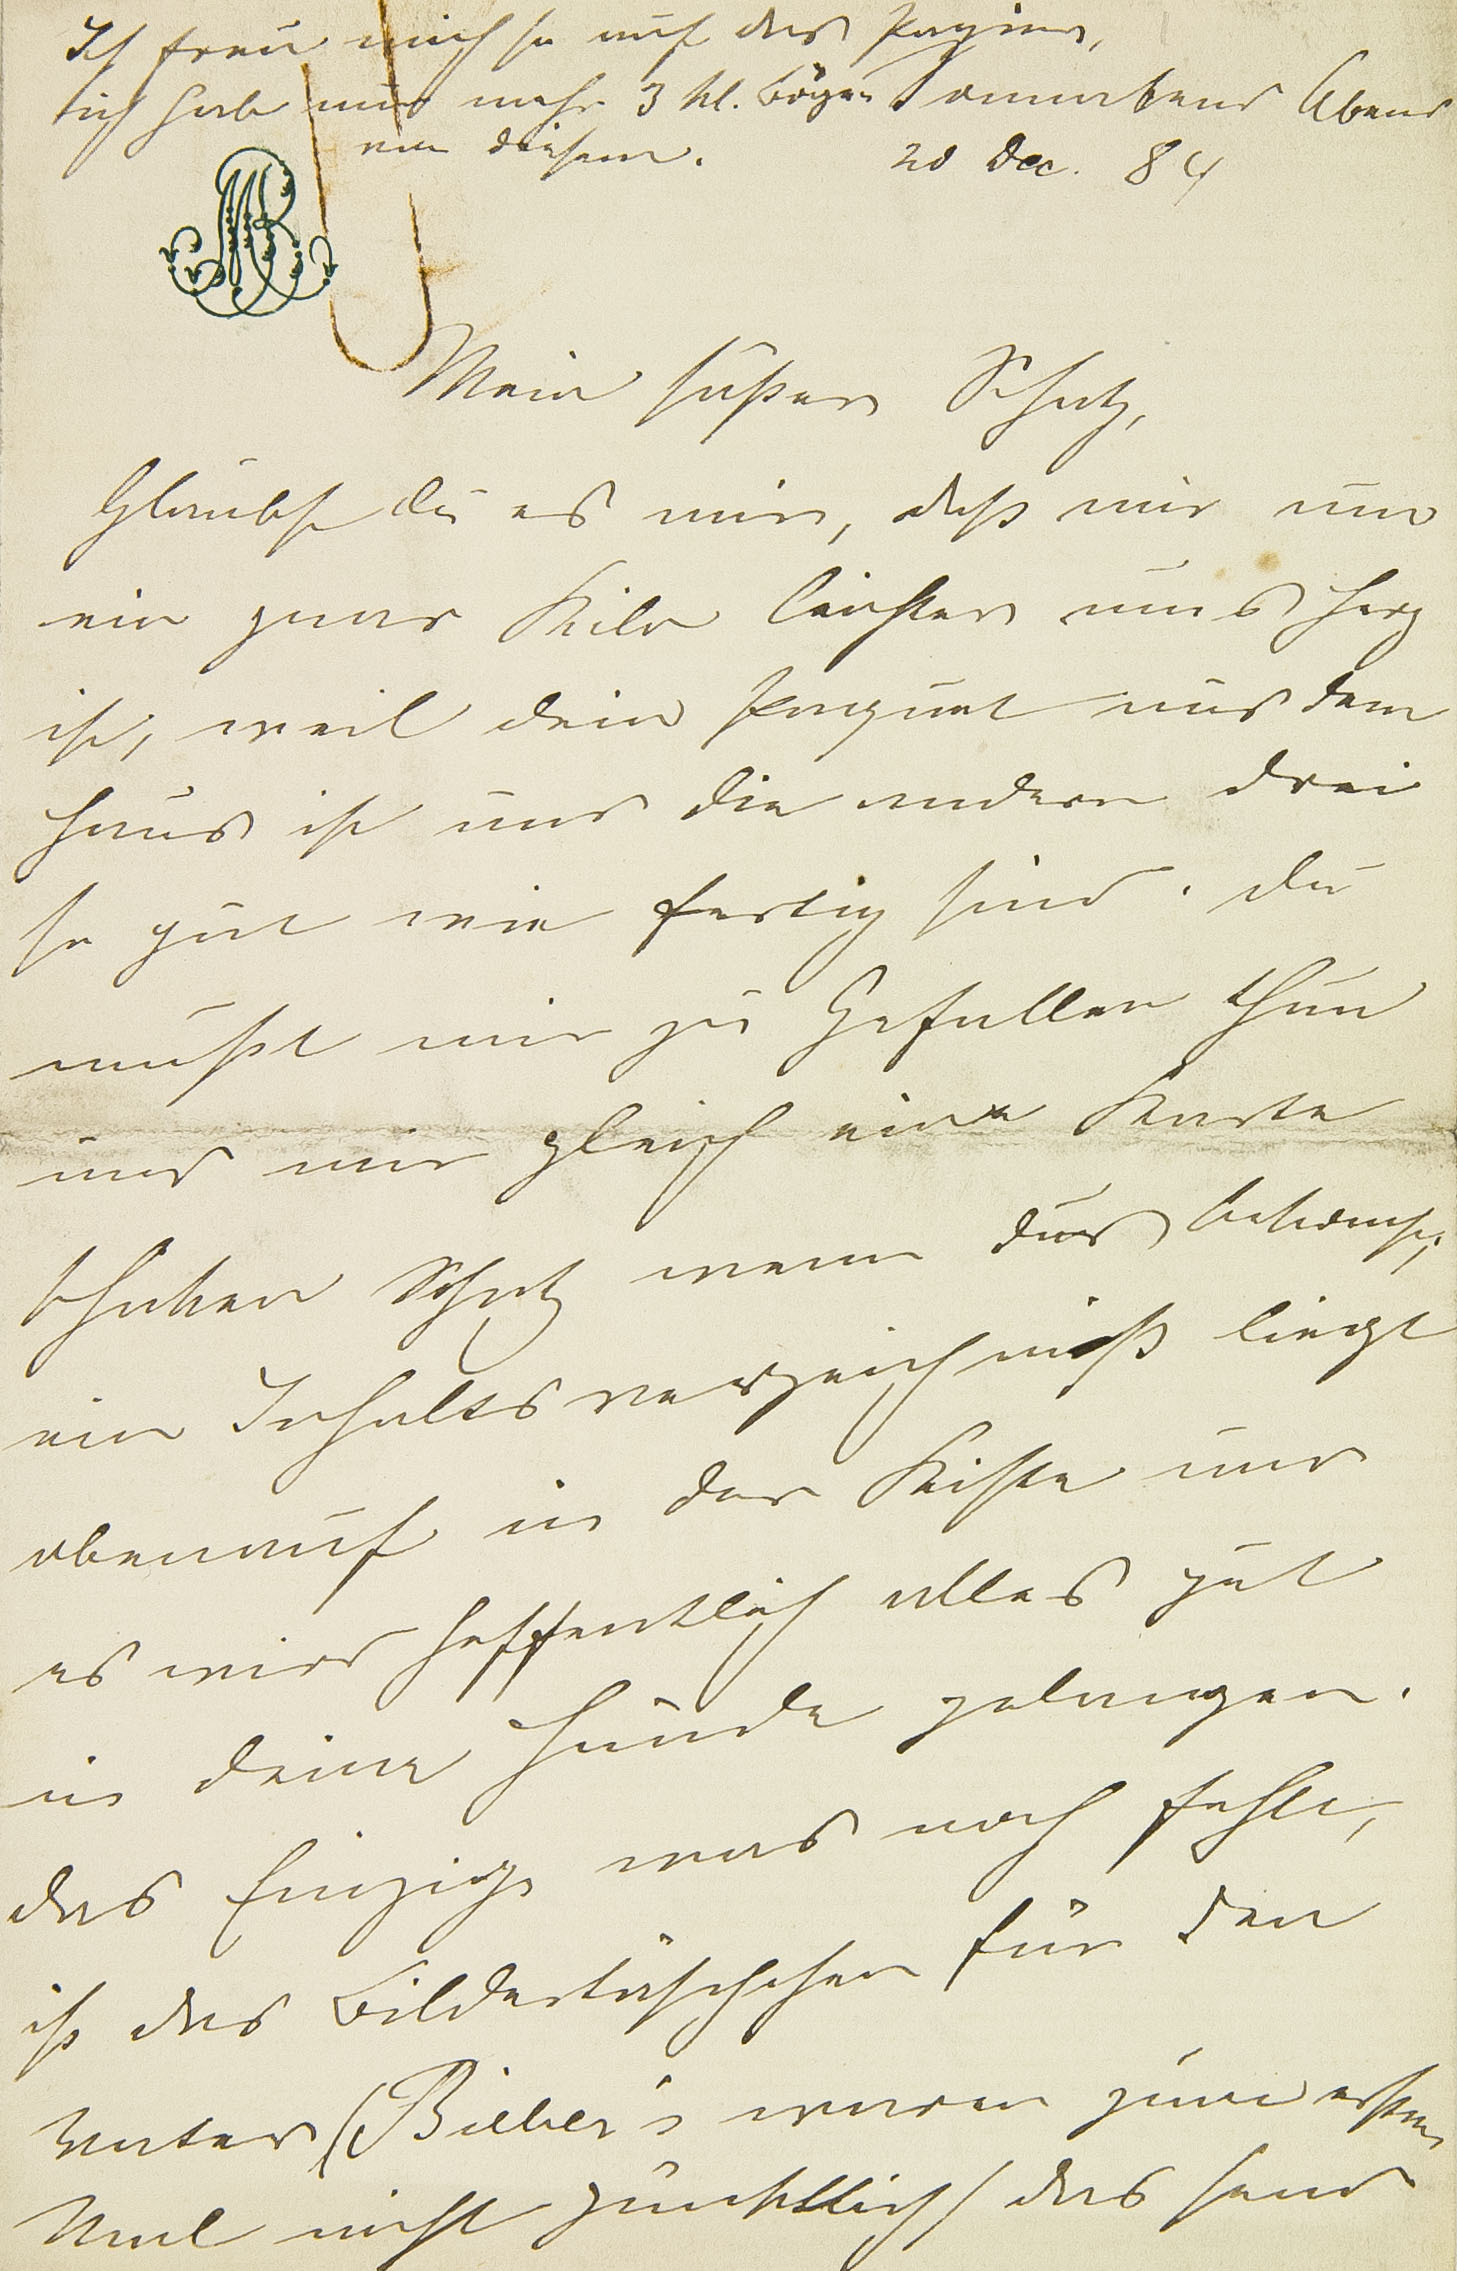 Ich freu mich so auf das Papier,
ich hab nur mehr 3 kl. Bögen
von diesem.
Sonnabend Abend
20 Dec. 84
MB
Mein süßer Schatz,
Glaubst du es mir, daß mir um
ein paar Kilo leichter ums Herz
ist, weil dein Paquet aus dem
Haus ist und die andern drei
so gut wie fertig sind. Du
mußt mir zu Gefallen thun
und mir gleich eine Karte
schicken Schatz wenn dus bekomst,
ein Inhaltsverzeichniß liegt
obenauf in der Kiste und
es wird hoffentlich alles gut
in deine Hände gelangen.
Das Einzige was noch fehlt,
ist das Bildertäschchen für den
Vater (Bieber's waren zum ersten
Mal nicht pünktlich) das send